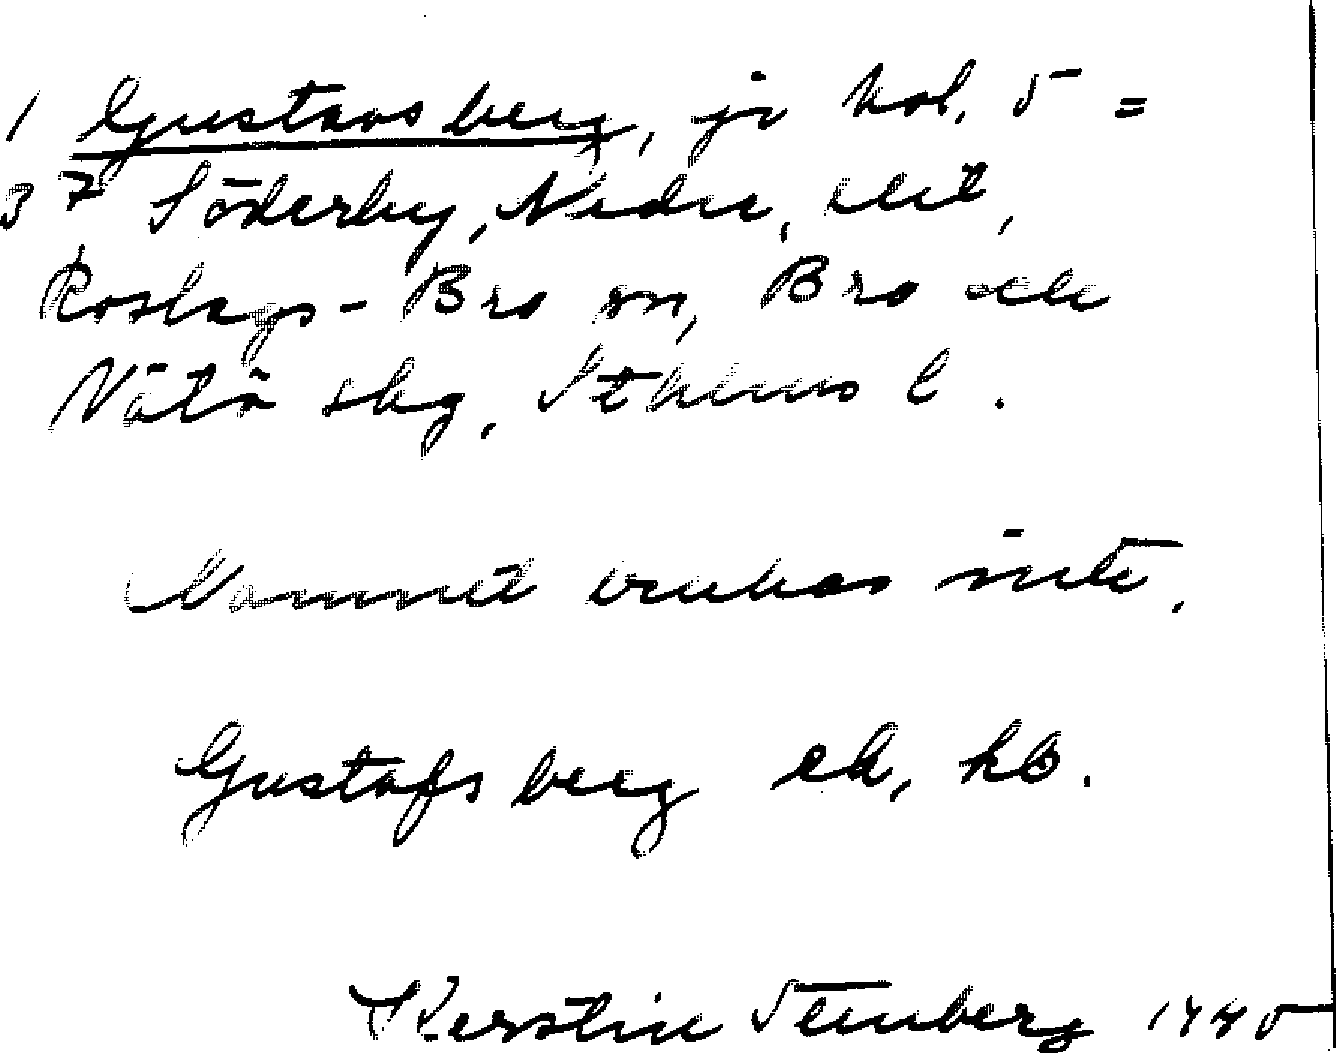 1 Gustavsberg, jv kol. 5 =
37 Söderby, Nedre, del,
Roslags-Bro sn, Bro och
Vätö skg, Sthlms l.
Namnet brukas inte.
Gustafsberg ek, kb.
Kerstin Stenberg